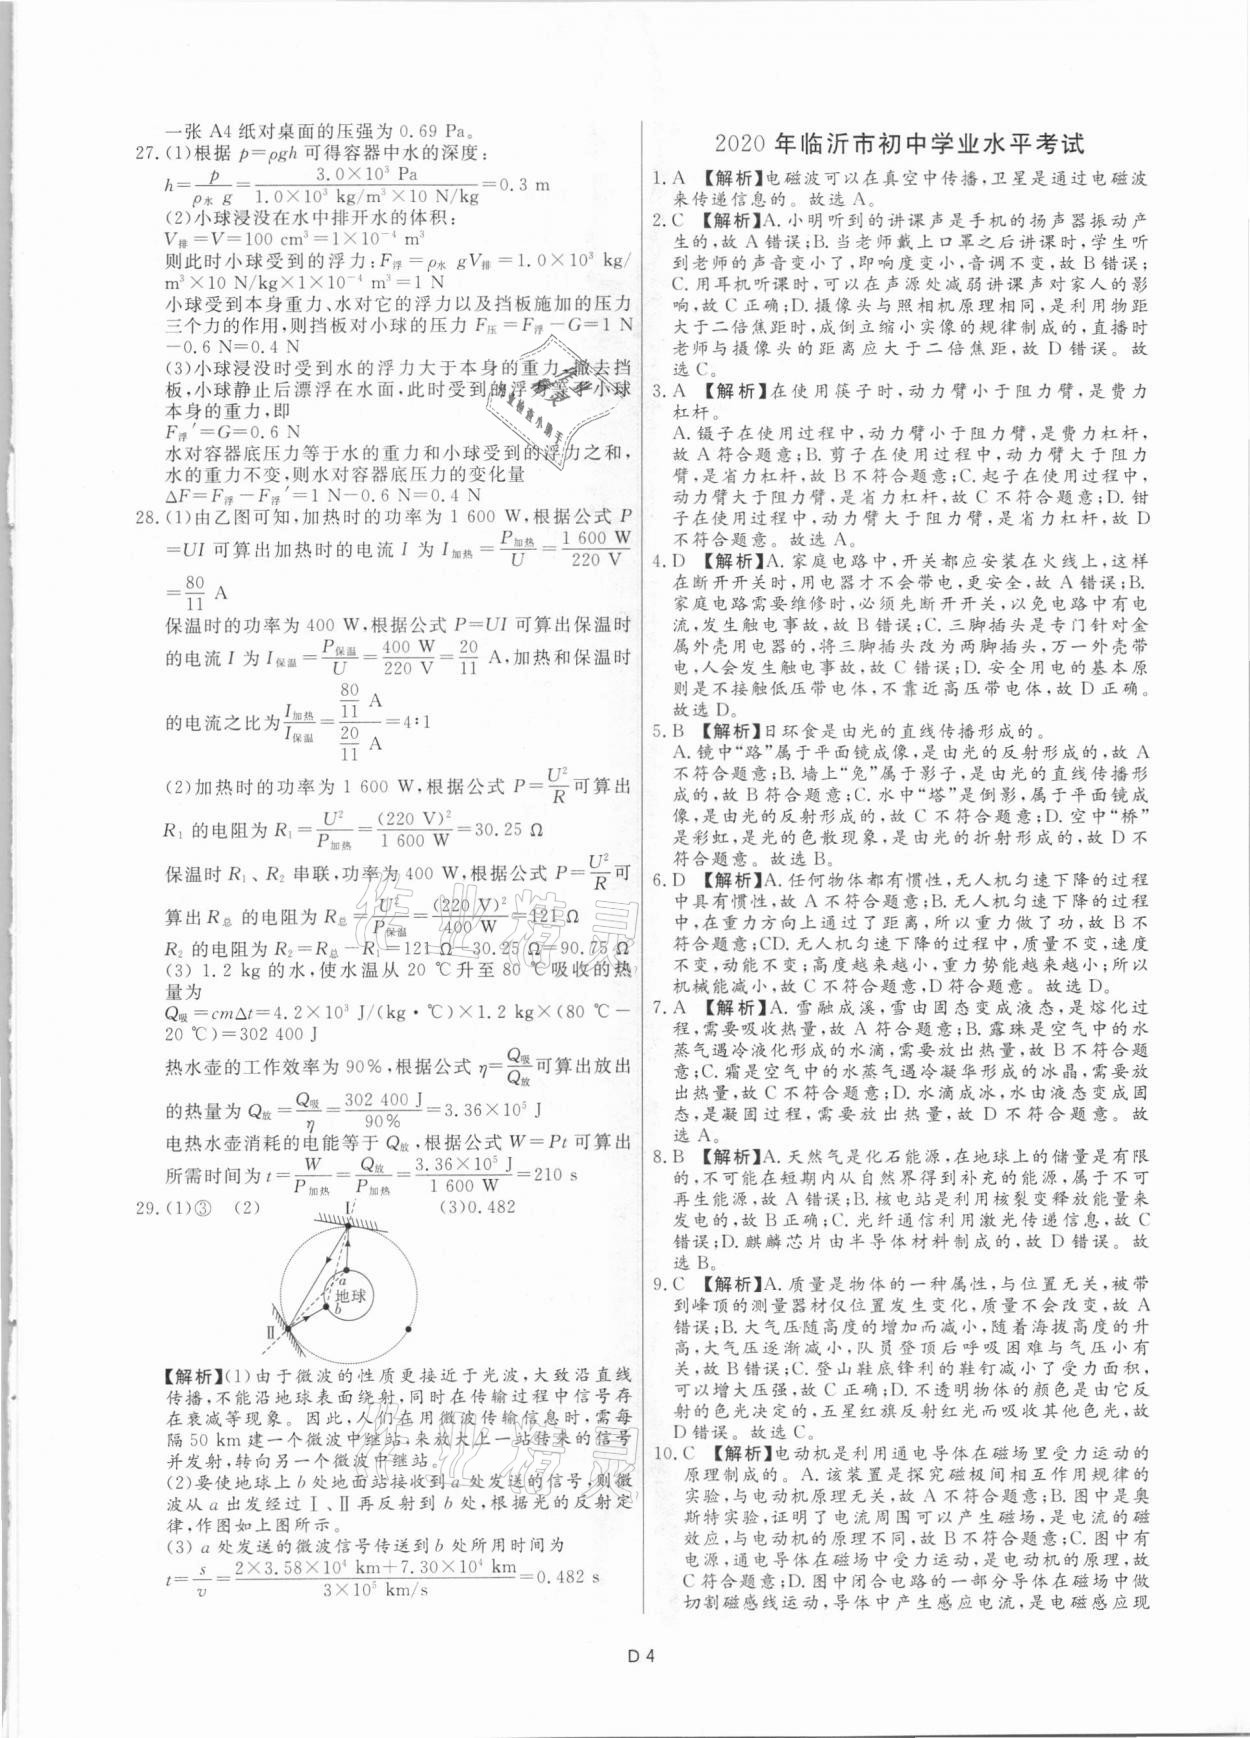 一张 A4 纸对桌面的压强为 0.69 Pa。
27.(1)根据 p=ρgh 可得容器中水的深度:
h=p/(ρ水 g)=(3.0×10³ Pa)/(1.0×10³ kg/m³×10 N/kg)=0.3 m
(2)小球浸没在水中排开水的体积:
V排=V=100 cm³=1×10⁻⁴ m³
则此时小球受到的浮力:F浮=ρ水 gV排=1.0×10³ kg/
m³×10 N/kg×1×10⁻⁴ m³=1 N
小球受到本身重力、水对它的浮力以及挡板施加的压力
三个力的作用,则挡板对小球的压力 F压=F浮-G=1 N
-0.6 N=0.4 N
(3)小球浸没时受到水的浮力大于本身的重力,撤去挡
板,小球静止后漂浮在水面,此时受到的浮力等于小球
本身的重力,即
F浮′=G=0.6 N
水对容器底压力等于水的重力和小球受到的浮力之和,
水的重力不变,则水对容器底压力的变化量
ΔF=F浮-F浮′=1 N-0.6 N=0.4 N
28.(1)由乙图可知,加热时的功率为 1 600 W,根据公式 P
=UI 可算出加热时的电流 I 为 I加热=P加热/U=1 600 W/220 V
=80/11 A
保温时的功率为 400 W,根据公式 P=UI 可算出保温时
的电流 I 为 I保温=P保温/U=400 W/220 V=20/11 A,加热和保温时
的电流之比为I加热/I保温=(80/11 A)/(20/11 A)=4∶1
(2)加热时的功率为 1 600 W,根据公式 P=U²/R可算出
R₁ 的电阻为 R₁=U²/P加热=(220 V)²/1 600 W=30.25 Ω
保温时 R₁、R₂ 串联,功率为 400 W,根据公式 P=U²/R可
算出 R总 的电阻为 R总=U²/P保温=(220 V)²/400 W=121 Ω
R₂ 的电阻为 R₂=R总-R₁=121 Ω-30.25 Ω=90.75 Ω
(3) 1.2 kg 的水,使水温从 20 ℃升至 80 ℃吸收的热
量为
Q吸=cmΔt=4.2×10³ J/(kg·℃)×1.2 kg×(80 ℃-
20 ℃)=302 400 J
热水壶的工作效率为 90%,根据公式 η=Q吸/Q放可算出放出
的热量为 Q放=Q吸/η=302 400 J/90%=3.36×10⁵ J
电热水壶消耗的电能等于 Q放,根据公式 W=Pt 可算出
所需时间为 t=W/P加热=Q放/P加热=3.36×10⁵ J/1 600 W=210 s
29.(1)③ (2) (3)0.482
Ⅰ
a
地球
b
Ⅱ
【解析】(1)由于微波的性质更接近于光波,大致沿直线
传播,不能沿地球表面绕射,同时在传输过程中信号存
在衰减等现象。因此,人们在用微波传输信息时,需每
隔 50 km 建一个微波中继站,来放大上一站传来的信号
并发射,转向另一个微波中继站。
(2)要使地球上 b 处地面站接收到 a 处发送的信号,则微
波从 a 出发经过Ⅰ、Ⅱ再反射到 b 处,根据光的反射定
律,作图如上图所示。
(3) a 处发送的微波信号传送到 b 处所用时间为
t=s/v=(2×3.58×10⁴ km+7.30×10⁴ km)/(3×10⁵ km/s)=0.482 s
2020 年临沂市初中学业水平考试
1. A 【解析】电磁波可以在真空中传播,卫星是通过电磁波
来传递信息的。故选 A。
2. C 【解析】A. 小明听到的讲课声是手机的扬声器振动产
生的,故 A 错误;B. 当老师戴上口罩之后讲课时,学生听
到老师的声音变小了,即响度变小,音调不变,故 B 错误;
C. 用耳机听课时,可以在声源处减弱讲课声对家人的影
响,故 C 正确;D. 摄像头与照相机原理相同,是利用物距
大于二倍焦距时,成倒立缩小实像的规律制成的,直播时
老师与摄像头的距离应大于二倍焦距,故 D 错误。故
选 C。
3. A 【解析】在使用筷子时,动力臂小于阻力臂,是费力
杠杆。
A. 镊子在使用过程中,动力臂小于阻力臂,是费力杠杆,
故 A 符合题意;B. 剪子在使用过程中,动力臂大于阻力
臂,是省力杠杆,故 B 不符合题意;C. 起子在使用过程中,
动力臂大于阻力臂,是省力杠杆,故 C 不符合题意;D. 钳
子在使用过程中,动力臂大于阻力臂,是省力杠杆,故 D
不符合题意。故选 A。
4. D 【解析】A. 家庭电路中,开关都应安装在火线上,这样
在断开开关时,用电器才不会带电,更安全,故 A 错误;B.
家庭电路需要维修时,必须先断开开关,以免电路中有电
流,发生触电事故,故 B 错误;C. 三脚插头是专门针对金
属外壳用电器的,将三脚插头改为两脚插头,万一外壳带
电,人会发生触电事故,故 C 错误;D. 安全用电的基本原
则是不接触低压带电体,不靠近高压带电体,故 D 正确。
故选 D。
5. B 【解析】日环食是由光的直线传播形成的。
A. 镜中“路”属于平面镜成像,是由光的反射形成的,故 A
不符合题意;B. 墙上“兔”属于影子,是由光的直线传播形
成的,故 B 符合题意;C. 水中“塔”是倒影,属于平面镜成
像,是由光的反射形成的,故 C 不符合题意;D. 空中“桥”
是彩虹,是光的色散现象,是由光的折射形成的,故 D 不
符合题意。故选 B。
6. D 【解析】A. 任何物体都有惯性,无人机匀速下降的过程
中具有惯性,故 A 不符合题意;B. 无人机匀速下降的过程
中,在重力方向上通过了距离,所以重力做了功,故 B 不
符合题意;CD. 无人机匀速下降的过程中,质量不变,速度
不变,动能不变;高度越来越小,重力势能越来越小;所以
机械能减小,故 C 不符合题意,D 符合题意。故选 D。
7. A 【解析】A. 雪融成溪,雪由固态变成液态,是熔化过
程,需要吸收热量,故 A 符合题意;B. 露珠是空气中的水
蒸气遇冷液化形成的水滴,需要放出热量,故 B 不符合题
意;C. 霜是空气中的水蒸气遇冷凝华形成的冰晶,需要放
出热量,故 C 不符合题意;D. 水滴成冰,水由液态变成固
态,是凝固过程,需要放出热量,故 D 不符合题意。故
选 A。
8. B 【解析】A. 天然气是化石能源,在地球上的储量是有限
的,不可能在短期内从自然界得到补充的能源,属于不可
再生能源,故 A 错误;B. 核电站是利用核裂变释放能量来
发电的,故 B 正确;C. 光纤通信利用激光传递信息,故 C
错误;D. 麒麟芯片由半导体材料制成的,故 D 错误。故
选 B。
9. C 【解析】A. 质量是物体的一种属性,与位置无关,被带
到峰顶的测量器材仅位置发生变化,质量不会改变,故 A
错误;B. 大气压随高度的增加而减小,随着海拔高度的升
高,大气压逐渐减小,队员登顶后呼吸困难与气压小有
关,故 B 错误;C. 登山鞋底锋利的鞋钉减小了受力面积,
可以增大压强,故 C 正确;D. 不透明物体的颜色是由它反
射的色光决定的,五星红旗反射红光而吸收其他色光,故
D 错误。故选 C。
10. C 【解析】电动机是利用通电导体在磁场里受力运动的
原理制成的。A. 该装置是探究磁极间相互作用规律的
实验,与电动机原理无关,故 A 不符合题意;B. 图中是奥
斯特实验,证明了电流周围可以产生磁场,是电流的磁
效应,与电动机的原理不同,故 B 不符合题意;C. 图中有
电源,通电导体在磁场中受力运动,是电动机的原理,故
C 符合题意;D. 图中闭合电路的一部分导体在磁场中做
切割磁感线运动,导体中产生感应电流,是电磁感应现
D 4
作业精灵
作业检查小助手
作业精灵
作业精灵